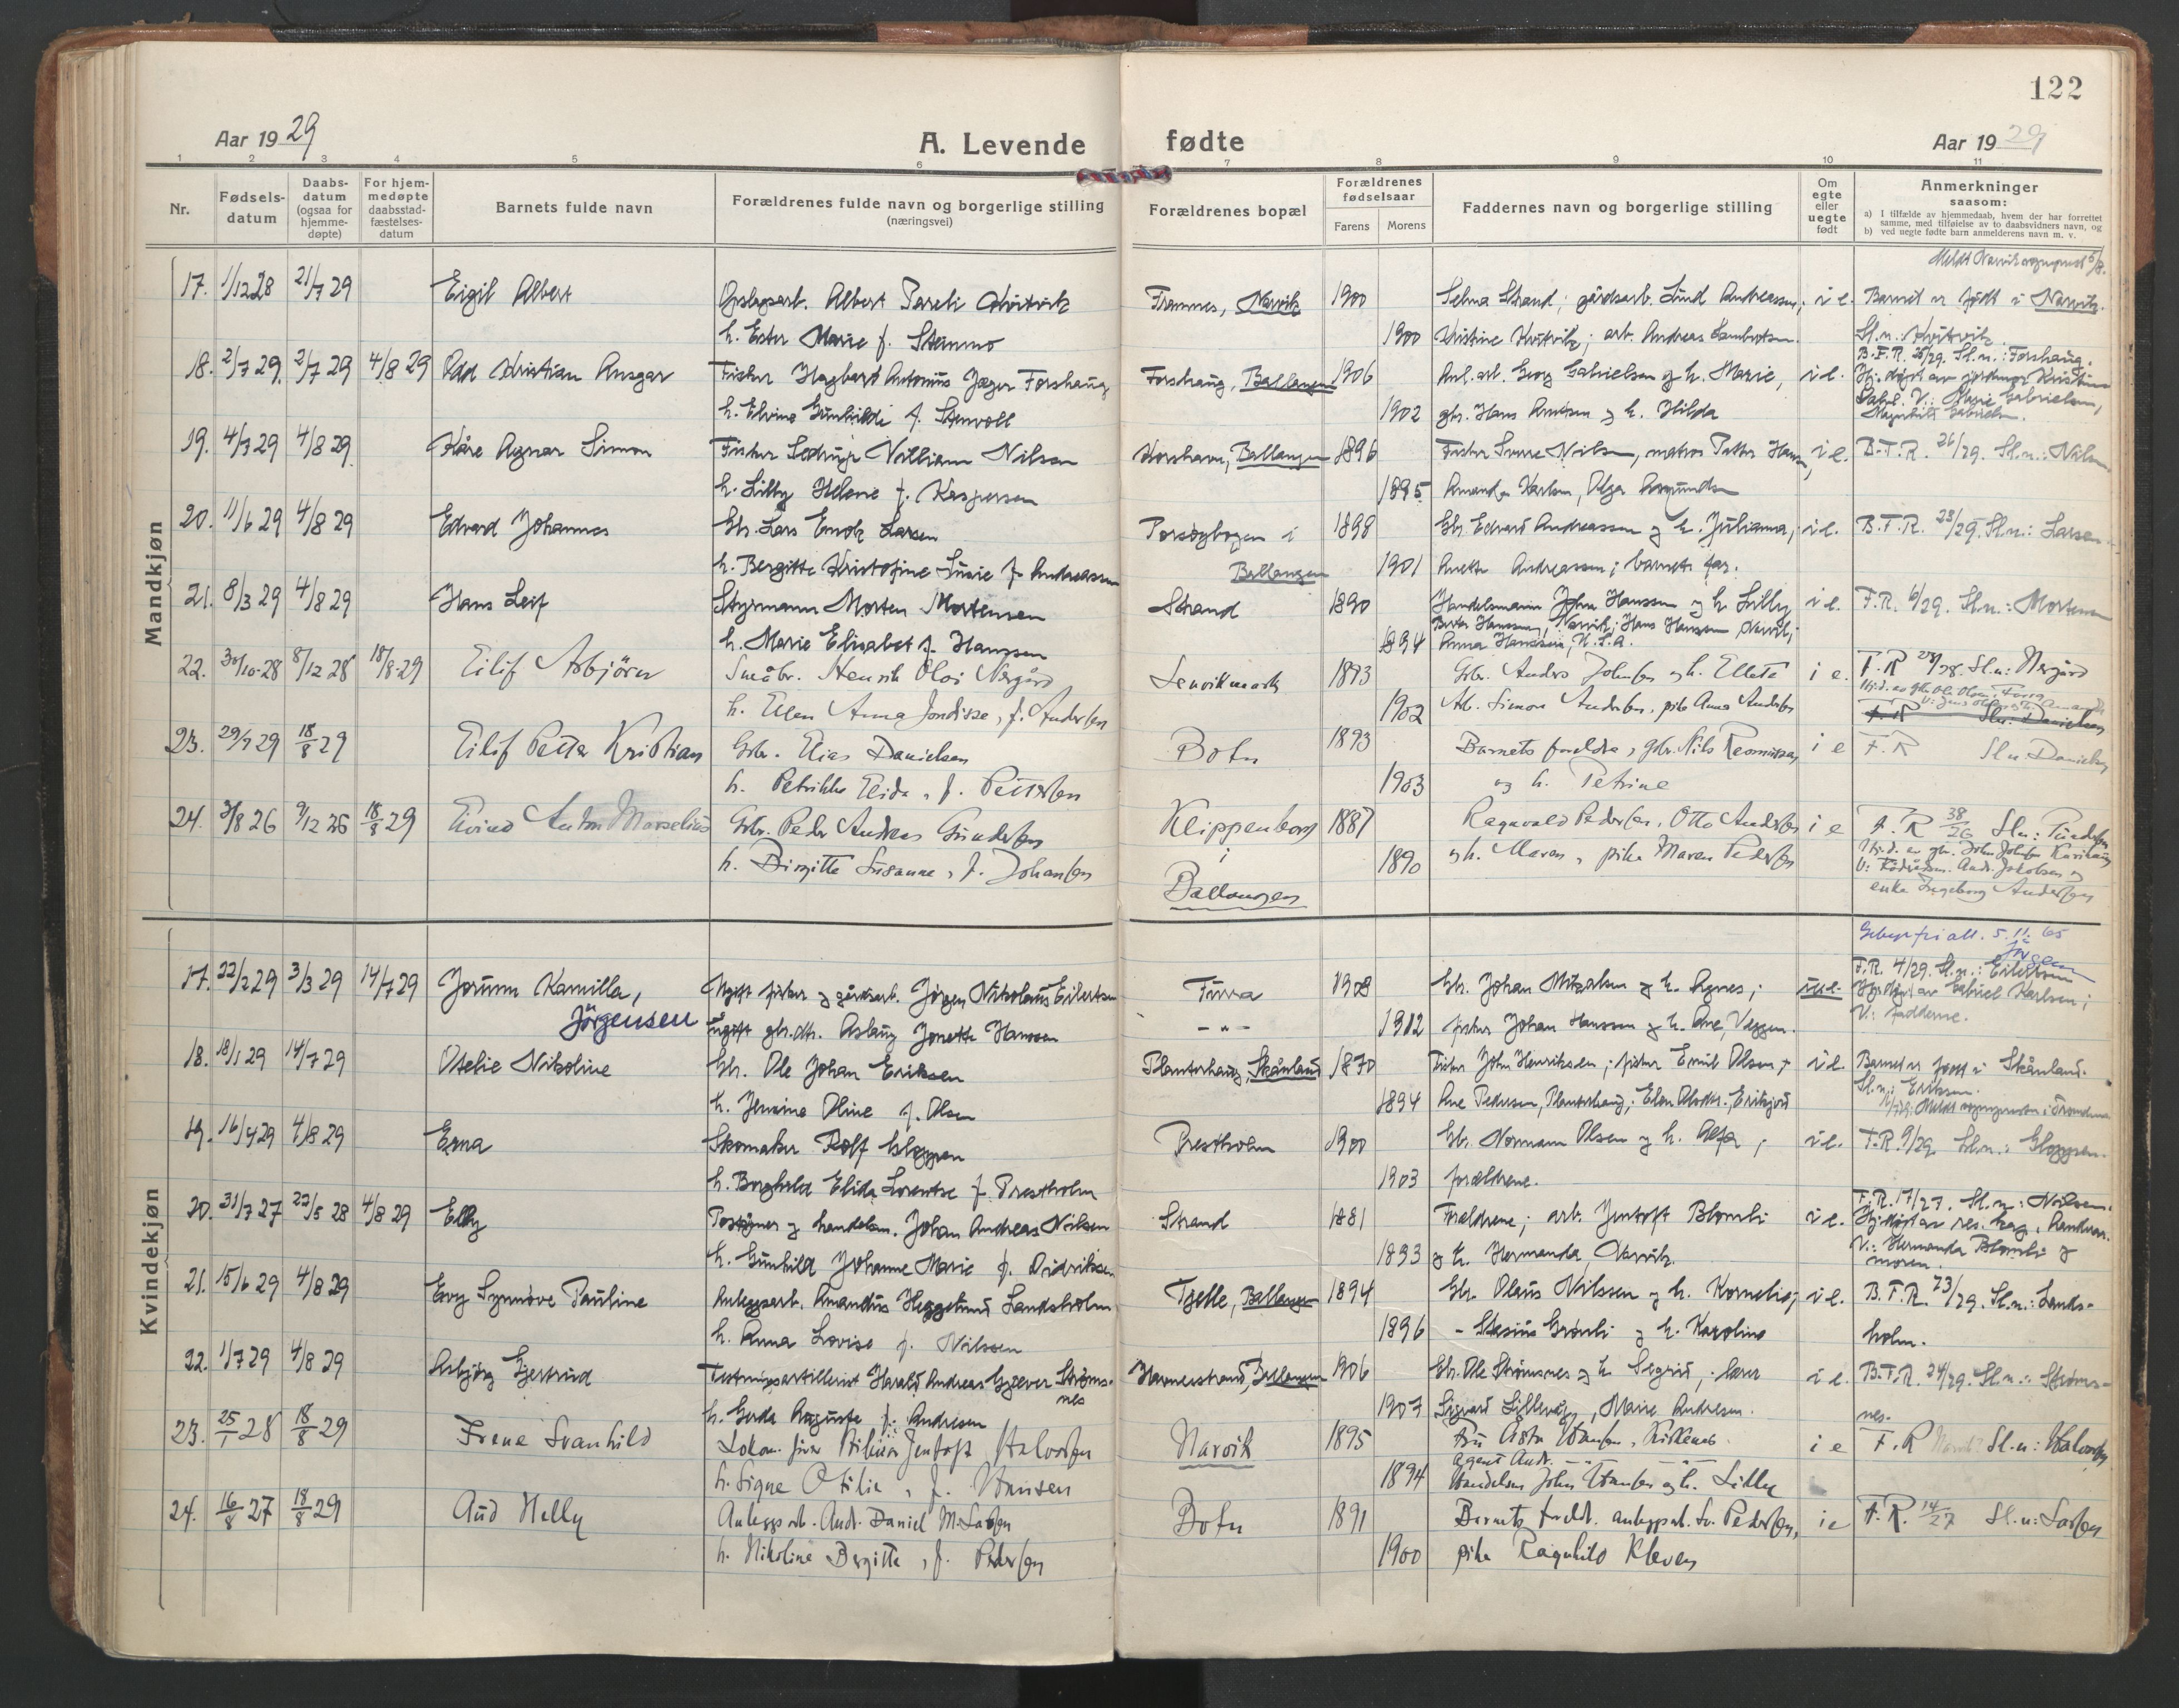 122
Aar 1929
A. Levende fødte
Aar 1929
1 2 3 4 5 6 7 8 9 10 11
Nr.
Fødsels-
datum
Daabs-
datum
(ogsaa for
hjemme-
døpte)
For hjem-
medøpte
daabsstad-
fæstelses-
datum
Barnets fulde navn
Forældrenes fulde navn og borgerlige stilling
(næringsvei)
Forældrenes bopæl
Forældrenes
fødselsaar
Farens Morens
Faddernes navn og borgerlige stilling
Om
egte
eller
uegte
født
Anmerkninger
saasom:
a) I tilfælde av hjemmedaab, hvem der har forrettet
samme, med tilføielse av to daabsvidners navn, og
b) ved uegte fødte barn anmelderens navn m. v.
Mandkjøn
17. 1/12 28 21/7 29 Eigil Albert Albert Pareli Kvitvik Framnes, Narvik 1900 Selma Strand; gårdsarb. Lind Andreassen; i e. Barnet er født i Narvik.
h. Ester Marie f. Stenmo 1900 Kristine Kvitvik; arb. Andreas Lambertsen. Sl.n.: Kvitvik
18. 2/7 29. 2/7 29 4/8 29 Odd Kristian Ansgar Fisker Hagbart Antonius Jæger Forshaug Forshaug, Ballangen 1906 Anl. arb. Georg Gabrielsen og h. Marie, i e. B.F.R. 25/29. Sl.n.: Forshaug.
h. Elvine Gunhilde f. Stenvoll 1902 gbr. Hans Arntsen og h. Hilda V.: Marie Gabrielsen,
19. 4/7 29 4/8 29. Kåre Agnar Simon Fisker Sedrup Villiam Nilsen Korshavn, Ballangen 1896 Fisker Sverre Nilsen, matros Petter Hansen, i e. B.F.R. 26/29. Sl.n.: Nilsen
h. Lilly Helene f. Kaspersen 1895. Amanda Karlsen, Olga Amundsen
20. 11/6 29 4/8 29 Edvard Johannes Gbr. Lars Enok Larsen i 1898 Gbr. Edvard Andreassen og h. Julianna; i e. B.F.R. 23/29. Sl.n.: Larsen
h. Bergitte Kristofine Lusie f. Andreassen Ballangen 1901 Anette Andreassen; barnets far.
21. 8/3 29 4/8 29 Hans Leif Styrmann Morten Mortensen Strand 1890 Handelsmann Johan Hanssen og h. Lilly i e. F.R. 6/29. Sl.n.: Mortensen
h. Marie Elisabet f. Hanssen 1894 Hanssen, Narvik; Hans Hanssen, Narvik; Anna Hanssen, U.S.A.
22. 30/10-28 8/12 28 18/8-29 Eilif Asbjörn Småbr. Henrik Olai Nergård Lenvikmark 1893 Gbr. Anders Johnsen og h. Elleta i e. F.R 28/28. Sl.n: Nergård
h. Ellen Anna Jondisse, f. Andersen 1902 Arb. Simon Andersen, pike Anna Andersen
23. 29/7 29 18/8 29 Eilif Petter Kristian Gbr. Elias Danielsen Botn 1893 Barnets foreldre, gbr. Nils Rasmussen i e F.R Sl.n. Danielsen
h. Petrikke Elida, f. Pettersen 1903 og h. Petrine
24. 3/8 26 9/12 26 18/8 29 Eivind Anton Marselius Gbr. Peder Andreas Gundersen Klippenborg 1887 Ragnvald Pedersen, Otto Andersen i e F.R 38/26 Sl.n: Gundersen
h. Birgitte Susanne, f. Johansen i 1890 og h. Maren, pike Maren Pedersen
Ballangen enke Ingeborg Andersen
Kvindekjøn
5.11.65
17. 22/2 29 3/3 29 14/7 29 Jorunn Kamilla, Ugift fisker og gårdsarb. Jörgen Nikolaus Eilertsen Forra 1908 Gbr. Johan Mikalsen og h. Agnes; u.e. F.R. 4/29. Sl.n.: Eilertsen
Jörgensen ugift gbr.dtr. Aslaug Jonette Hanssen -"- 1912 fisker Johan Hanssen og h. Ane, Veggen. Hj.døpt av Gabriel Karlsen; V.: fadderne.
18. 18/1 29 14/7 29 Otelie Nikoline Gbr. Ole Johan Eriksen Planterhaug, Skånland 1870 Fisker John Henriksen; fisker Emil Olsen, i e. Barnet er født i Skånland.
h. Jensine Oline f. Olsen 1894 Ane Pedersen, Planterhaug; Sl.n.: Eriksen.
19. 16/4 29 4/8 29 Erna Skomaker Rolf Gloppen Prestholm 1900 Gbr. Normann Olsen og h. Alfa; i e. F.R. 9/29. Sl.n.: Gloppen.
h. Borghild Elida Lorentse f. Prestholm 1903 foreldrene.
20. 31/7 27 22/5 28 4/8 29 Elly og handelsm. Johan Andreas Nilsen Strand 1881 Foreldrene; arb. Jentoft Blomli i e. F.R. 17/27. Sl.n.: Nilsen.
h. Gunhild Johanne Marie f. Didriksen 1893 og h. Hermanda, Narvik. V.: Hermanda Blomli og moren.
21. 15/6 29 4/8 29 Evy Synnöve Pauline Anleggsarb. Amandus Heggelund Landsholm Tjelle, Ballangen 1894 Gbr. Olaus Nilssen og h. Kornelia; i e. B.F.R. 23/29. Sl.n.: Lands-
h. Anna Lovise f. Nilssen 1896 - Stasius Grönli og h. Karoline holm.
22. 1/7 29 4/8 29 Asbjörg Gjertrud Festningsartillerist Harald Andreas Gjæver Ströms- Hamnerstrand, Ballangen 1906 Gbr. Ole Strömsnes og h. Sigrid, i e. B.F.R. 24/29. Sl.n.: Ströms-
nes
h. Gerda Auguste f. Andresen 1907 Sigvard Lillevåg, Marie Andresen. nes.
23. 25/1 28 18/8 29 Irene Svanhild Jentoft Halvorsen Narvik 1895 i e F.R Sl.n: Halvorsen
h. Signe Otilie, f. Hansen 1894 Handelsm. John Hansen og h. Lilly
24. 16/8 27 18/8 29 Aud Nelly Anleggsarb. Andr. Daniel M. Larsen Botn 1891 Barnets foreldr. anleggsarb. Sv. Pedersen, i e F.R. 14/27 Sl.n: Larsen
h. Nikoline Bergitte, f. Pedersen 1900 pike Ragnhild Kleven